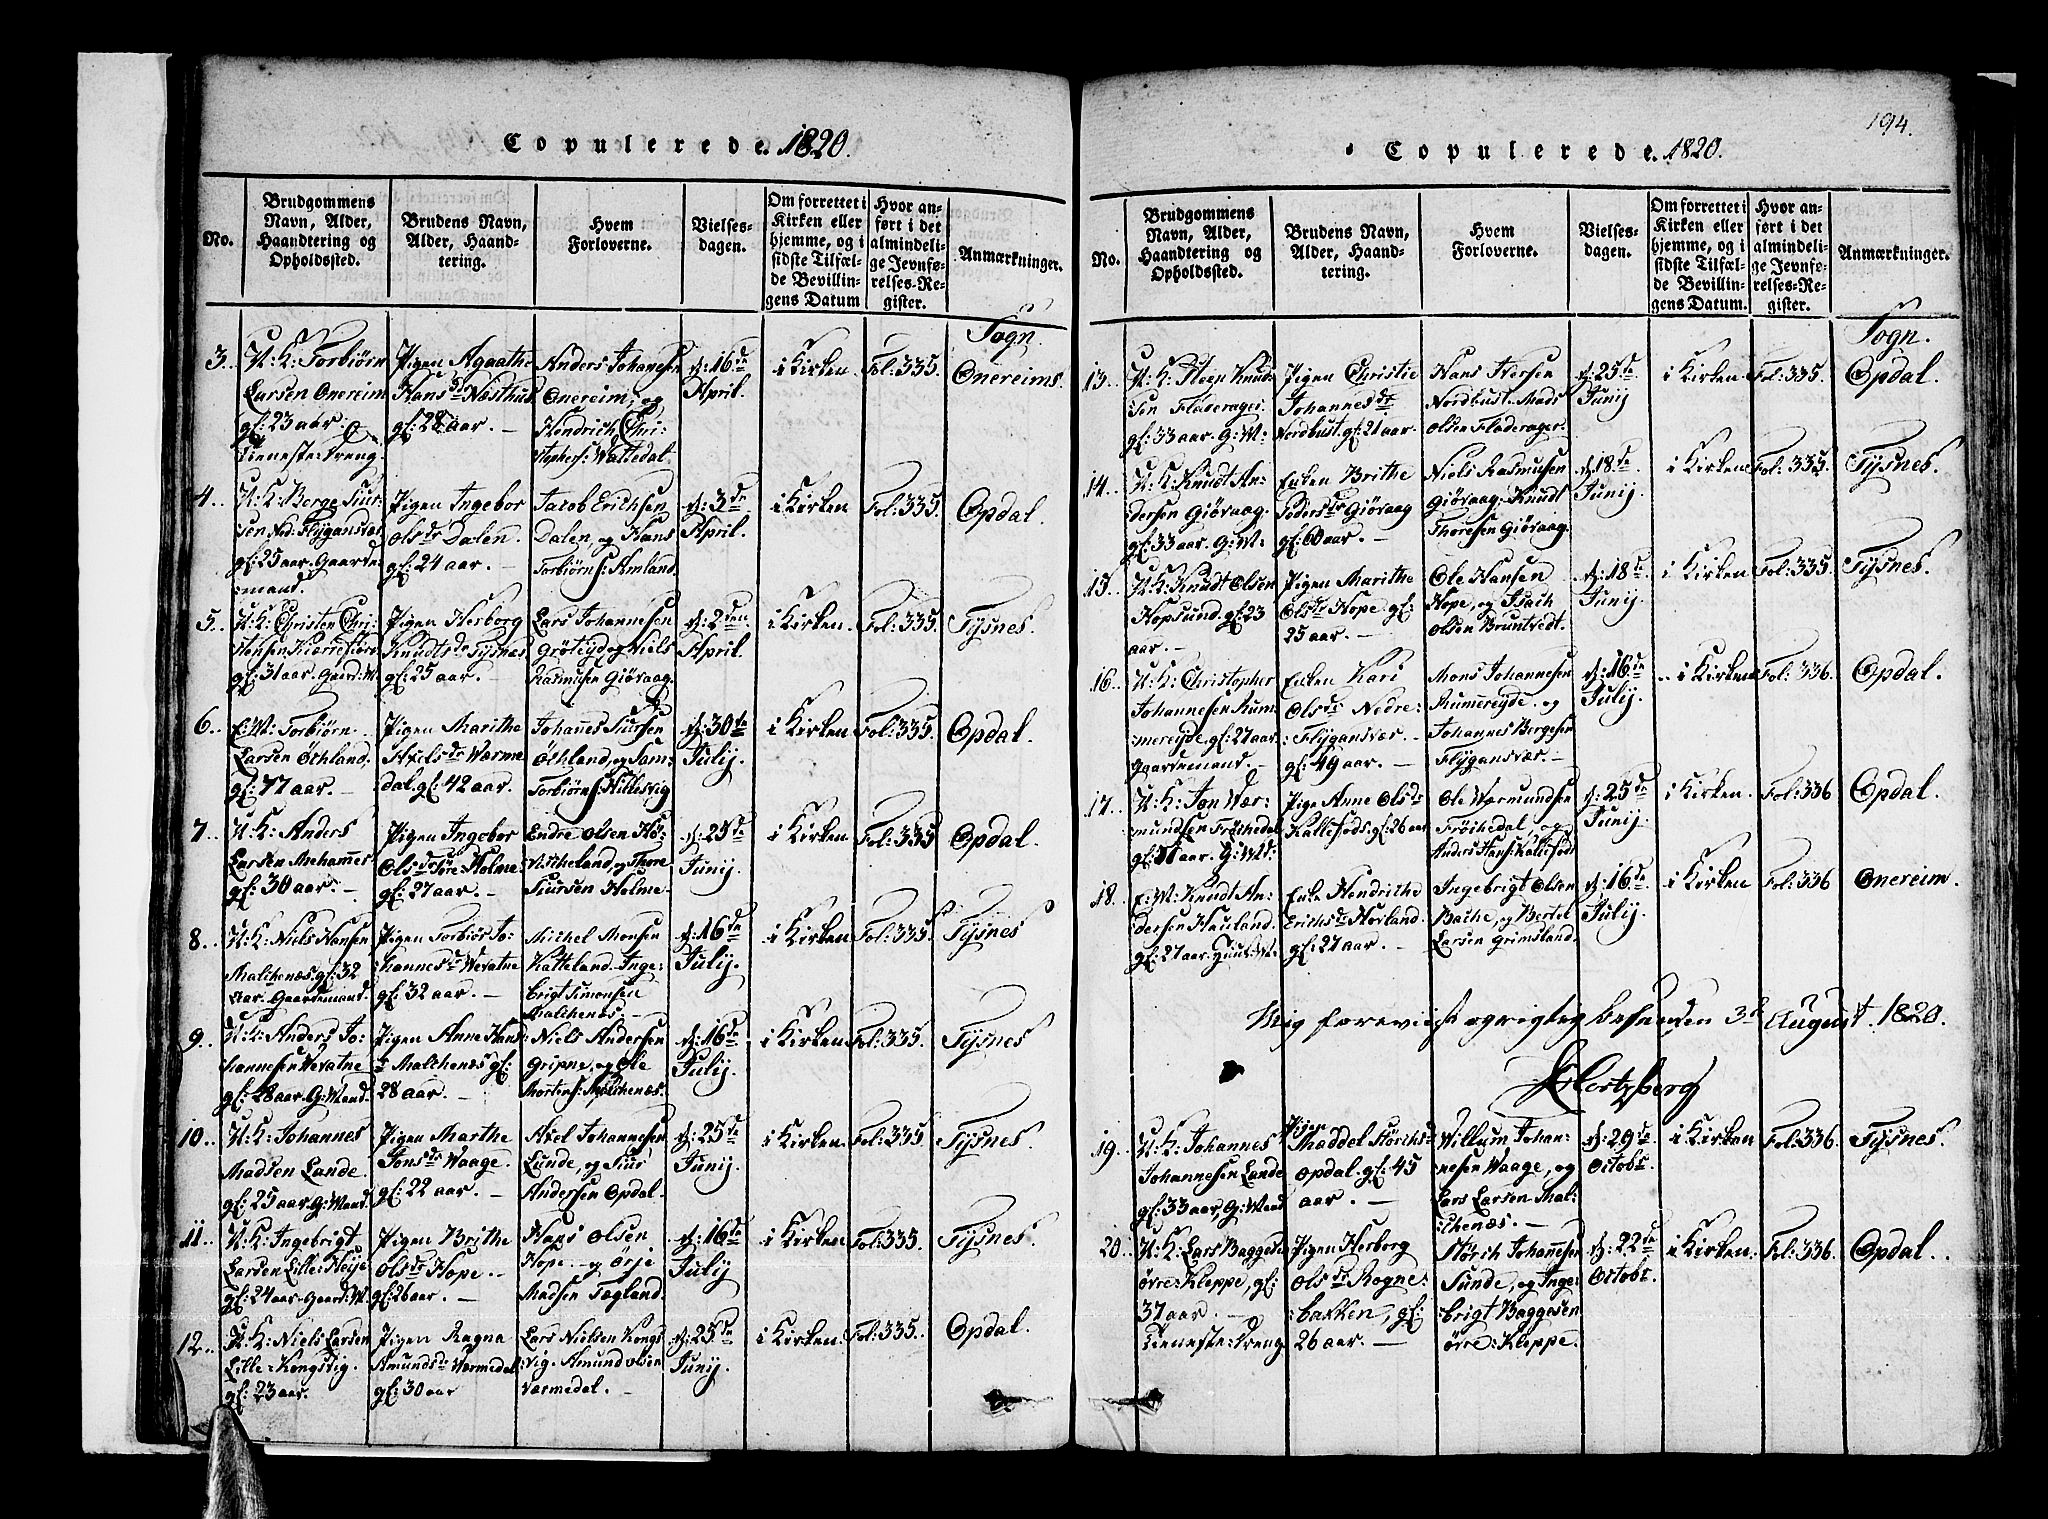 Copulerede. 1820.
No.
Brudgommens
Navn, Alder,
Haandtering og
Opholdssted.
Brudens Navn,
Alder, Haand-
tering.
Hvem
Forloverne.
Vielses-
dagen.
Om forrettet i
Kirken eller
hjemme, og i
sidste Tilfæl-
de Bevillin-
gens Datum
Hvor an-
ført i det
almindeli-
ge Jevnfø-
relses-Re-
gister.
Anmærkninger.
Sogn.
3.
U: K: Torbiørn
Larsen Onereim
gl: 23 aar.
Tieneste-Dreng.
Pigen Agaathe
Hans dr Næsthus
gl: 28 aar. —
Anders Johanesen
Onereim, og
Hendrich Chri-
stophers: Wattedal
d: 16de
April.
i Kirken
Fol: 335.
Onereims.
4.
U: K: Berge Siur-
sen Ned: Flygansvær
gl: 25 aar. Gaarde-
mand.
Pigen Ingebor
Ols dr Dalen.
gl: 24 aar. —
Jacob Erichsen
Dalen, og Hans
Torbiørns: Amland.
d: 3de
April.
i Kirken
Fol: 335.
Opdal.
5.
U: K: Christen Chri-
stensen
gl: 31 aar. Gaard: M.
Pigen Herborg
Knudts dr Tysnes
gl: 25 aar. —
Lars Johannesen
Grøteyd og Niels
Rasmusen Giøvaag.
d: 2den
April.
i Kirken.
Fol: 335.
Tysnes.
6.
E: M: Torbiørn
Larsen Øthland.
gl: 77 aar. —
Pigen Marithe
Axels dr Wærme-
dal. gl: 42 aar.
Johannes Siursen
Øthland, og Sam-
Torbiørns: Hillesvig
d: 30te
Julij.
i Kirken
Fol: 335.
Opdal.
7.
U: K: Anders
Larsen Mehammer
gl: 30 aar. —
Pigen Ingebor
Ols dr Søre: Holme
gl: 27 aar. —
Endre Olsen
og Thore
Siursen Holme.
d: 25de
Junij.
i Kirken
Fol: 335
Opdal.
8.
U: K: Niels Hansen
Malchenæs. gl: 32
Aar. Gaardemand.
Pigen Torbiør Jo-
hannes dr Wevatne
gl: 32 aar. —
Michel Monsen
Katteland. Inge-
brigt Simonsen
Malchenæs. —
d: 16de
Julij.
i Kirken
Fol: 335.
Tysnes
9.
U: K: Anders Jo-
hannesen Wevatne
gl: 28 aar. G: Mand.
Pigen Anne Hans
dr Malchenæs gl:
28 aar. —
Niels Andersen
Gripne, og Ole
Mortens: Malchenæs.
d: 16de
Julij.
i Kirken
Fol: 335.
Tysnes
10.
U: K: Johannes
Madsen Lande
gl: 25 aar. G: Mand.
Pigen Marthe
Jons dr Waage.
gl: 22 aar. —
Axel Johannesen
Lunde, og Siur
Andersen Opdal.
d: 25de
Junij
i Kirken
Fol: 335
Tysnes.
11.
U: K: Ingebrigt
Larsen Lille: Heije
gl: 24 aar. Gaard: M.
Pigen Brithe
Ols dr Hope. —
gl: 26 aar. —
Hans Olsen
Hope. — og Ørje
Madsen Tægland.
d: 16de
Julij
i Kirken
Fol: 335.
Tysnes.
12.
U: K: Niels Larsen
Lille: Kongsvig.
gl: 23 aar.
Pigen Ragna
Amunds dr Wærmedal
gl: 30 aar
Lars Nielsen Kongs-
vig. Amund Olsen
Værmedal. —
d: 25de
Junij.
i Kirken.
Fol: 335.
Opdal.
194.
Copulerede. 1820.
No.
Brudgommens
Navn, Alder,
Haandtering og
Opholdssted.
Brudens Navn,
Alder, Haand-
tering.
Hvem
Forloverne.
Vielses-
dagen.
Om forrettet i
Kirken eller
hjemme, og i
sidste Tilfæl-
de Bevillin-
gens Datum.
Hvor an-
ført i det
almindeli-
ge Jevnfø-
relses-Re-
gister.
Anmærkninger.
Sogn.
13.
U: K: Steen Knud-
sen Fladerager.
gl: 33 aar. G: M:
Pigen Christie
Johannes dr
Nordbust. gl: 21 aar.
Hans Iversen
Nordbust. Mads
Olsen Fladerager.
d: 25de
Junij
i Kirken
Fol: 335.
Opdal.
14.
U: K: Knudt An-
dersen Giøvaag.
gl: 33 aar. G: M:
Enken Brithe
Peders dr Giøvaag
gl: 60 aar. —
Niels Rasmusen
Giøvaag. Knudt
Thoresen Giøvaag.
d: 18de
Junij.
i Kirken
Fol: 335.
Tysnes.
15.
U: K: Knudt Olsen
Hopsund. gl: 23
aar. —
Pigen Marithe
Ols dr Hope. gl:
25 aar. —
Ole Hansen
Hope, og Isach
Olsen Bruntvedt.
d: 18de
Junij.
i Kirken
Fol: 335
Tysnes.
16.
U: K: Christopher
Johannesen Rum-
mereyde. gl: 27 aar.
Gaardemand. —
Enken Kari
Ols dr Nedre-
Flygansvær.
gl: 49 aar. —
Mons Johannesen
Rumereyde. og
Johannes Bergesen
Flygansvær. —
d: 16de
Julij
i Kirken
Fol: 336.
Opdal.
17.
U: K: Jon Wær-
mundsen Frøchedal
gl: 31 aar. G: Md:
Pige Anne Ols dr
Kallefods. gl: 26 aar
Ole Wærmundsen
Frøchedal, og
Anders Hans: Kallefods
d: 25de
Junij.
i Kirken.
Fol: 336
Opdal.
18.
E: M: Knudt An-
dersen Hauland.
gl: 27 aar. Huus: M.
Enke Hendrithe
Erichs dr Horland.
gl: 27 aar. —
Ingebrigt Olsen
Bache, og Bertel
Larsen Grimsland.
d: 16de
Julij.
i Kirken
Fol: 336
Onereim.
Mig foreviist og rigtig befunden 3d August. 1820.
Hertzberg
19.
U: K: Johannes
Johannesen Lande
gl: 33 aar, G: Mand
Pigen
Maddel Storchs dr
Opdal. gl: 45
aar. —
Willum Johan-
nesen Waage, og
Lars Larsen Mal-
chenæs. —
d: 29de
Octobr.
i Kirken
Fol: 336.
Tysnes.
20.
U: K: Lars Baggesen
Øvre: Kleppe, gl:
37 aar. —
Tieneste: Dreng
Pigen Herborg
Ols dr Rogne-
bakken, gl:
26 aar. —
Størch Johannesen
Sunde, og Inge-
brigt Baggesen
Øvre: Kleppe.
d: 22de
Octobr.
i Kirken.
Fol: 336.
Opdal.